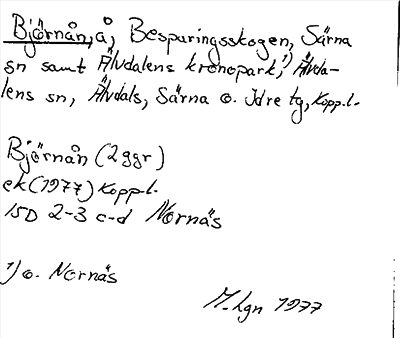 Björnån, å, Besparingsskogen, Särna
sn samt Älvdalens kronopark,¹) Älvda-
lens sn, Älvdals, Särna o. Idre tg, Kopp.l.
Björnån (2 ggr)
ek (1977) Kopp.l.
15D 2-3 c-d Nornäs
¹) o. Nornäs
M-Lgn 1977